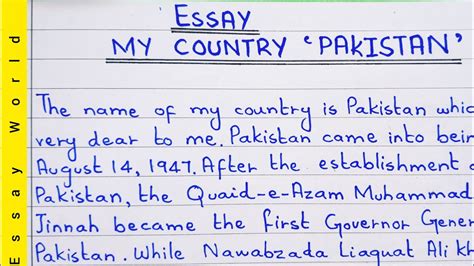 ESSAY
MY COUNTRY ‘PAKISTAN’
The name of my country is Pakistan whic
very dear to me. Pakistan came into bein
August 14, 1947. After the establishment
Pakistan, the Quaid-e-Azam Muhammad
Jinnah became the first Governor Gener
Pakistan. While Nawabzada Liaquat Ali kh
Essay World